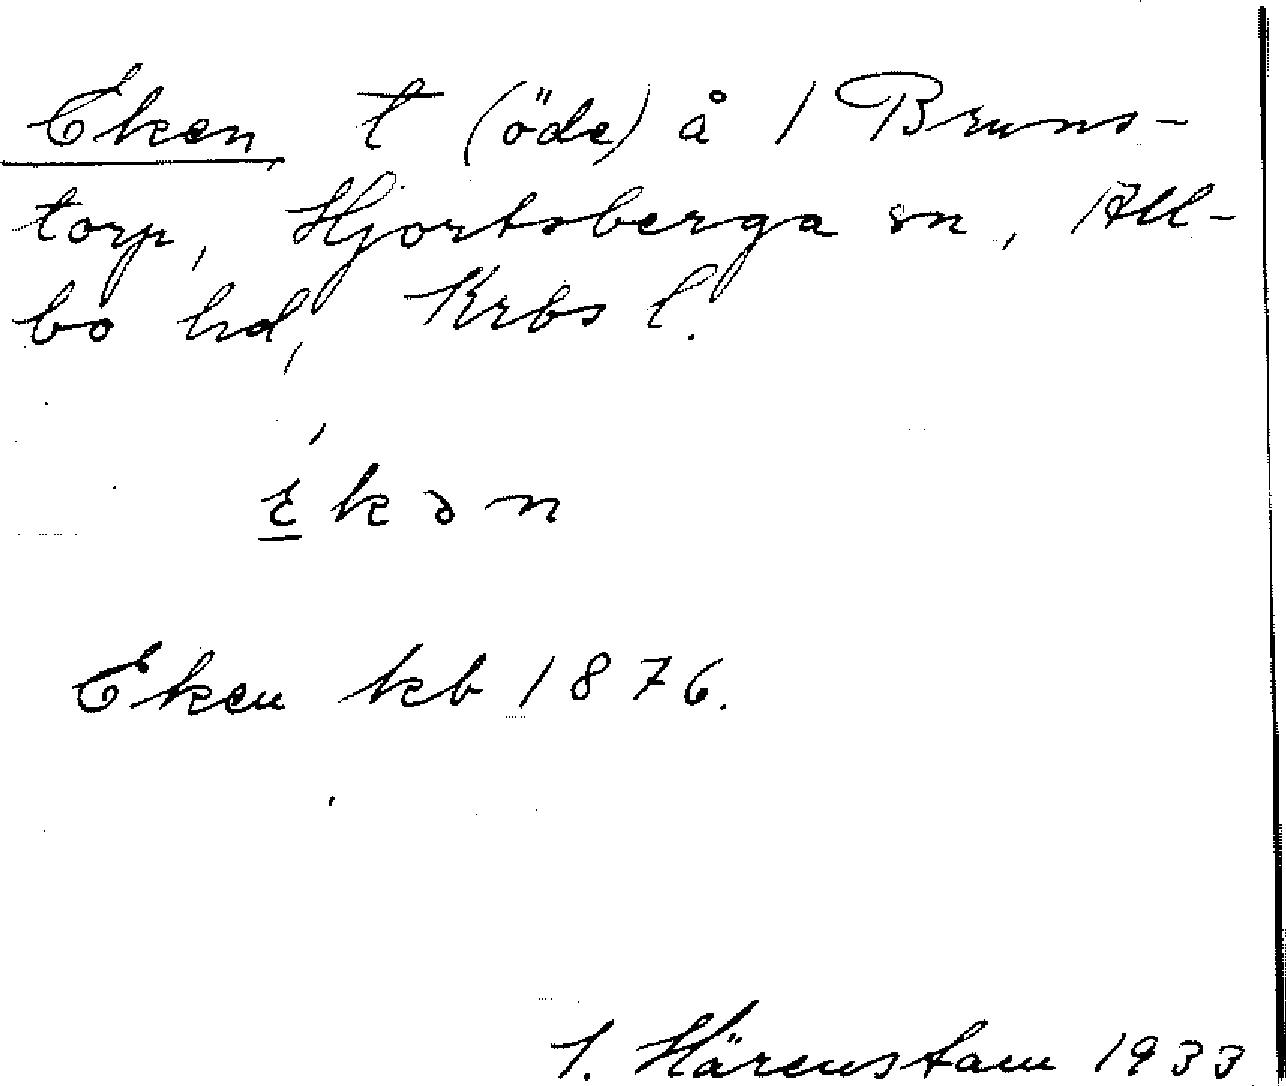 Eken, t (öde) å 1 Bruns-
torp, Hjortsberga sn, All-
bo hd, Krbs l.
ɛ́kən
Eken kb 1876.
I. Härenstam 1933